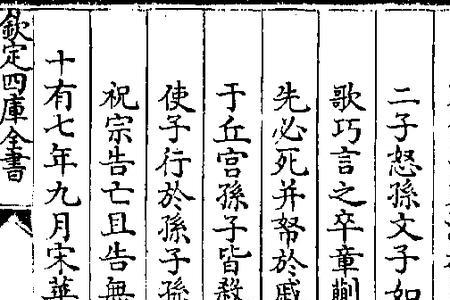 二子怒孫文子如
歌巧言之卒章蒯
先必死并帑於戚
于丘宫孫子皆殺
使子行於孫子孫
祝宗告亡且告無
十有七年九月宋華
欽定四庫全書